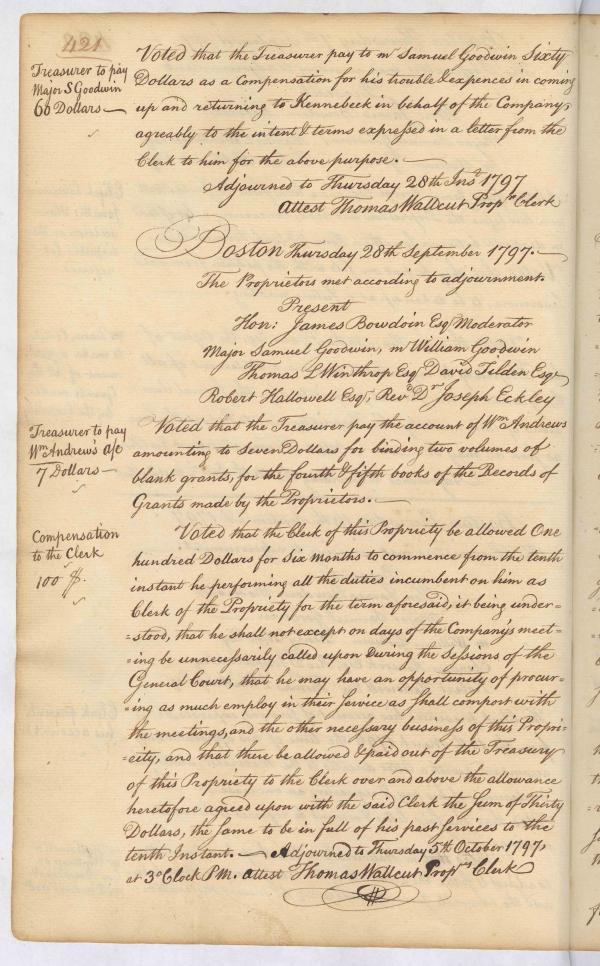 421
Treasurer to pay
Major S Goodwin
60 Dollars —
Voted that the Treasurer pay to mr Samuel Goodwin Sixty
Dollars as a Compensation for his trouble & expences in coming
up and returning to Kennebeck in behalf of the Company,
agreably to the intent & terms expressed in a letter from the
Clerk to him for the above purpose. —
Adjourned to Thursday 28th Inst 1797
attest Thomas Wallcut Proprs Clerk
Boston Thursday 28th September 1797. —
The Proprietors met according to adjournment.
Present
Hon: James Bowdoin Esq Moderator
Major Samuel Goodwin, mr William Goodwin
Thomas L Winthrop Esqr David Tilden Esqr
Robert Hallowell Esqr, Revd Dr Joseph Eckley
Treasurer to pay
Wm Andrews's a/c
7 Dollars —
Voted that the Treasurer pay the account of Wm Andrews
amounting to Seven Dollars for binding two volumes of
blank grants, for the fourth & fifth books of the Records of
Grants made by the Proprietors. —
Compensation
to the Clerk
100 $.
Voted that the Clerk of this Propriety be allowed One
hundred Dollars for Six Months to commence from the tenth
instant he performing all the duties incumbent on him as
Clerk of the Propriety for the term aforesaid; it being under=
=stood, that he shall not except on days of the Company's meet=
=ing be unnecessarily called upon During the Sessions of the
General Court, that he may have an opportunity of procur=
=ing as much employ in their Service as Shall comport with
the meetings, and the other necessary business of this Propri=
=eity, and that there be allowed & paid out of the Treasury
of this Propriety to the Clerk over and above the allowance
heretofore agreed upon with the said Clerk the Sum of Thirty
Dollars, the Same to be in full of his past Services to the
tenth Instant. — Adjourned to Thursday 5th October 1797,
at 3 oClock P.M. attest Thomas Wallcut Proprs Clerk